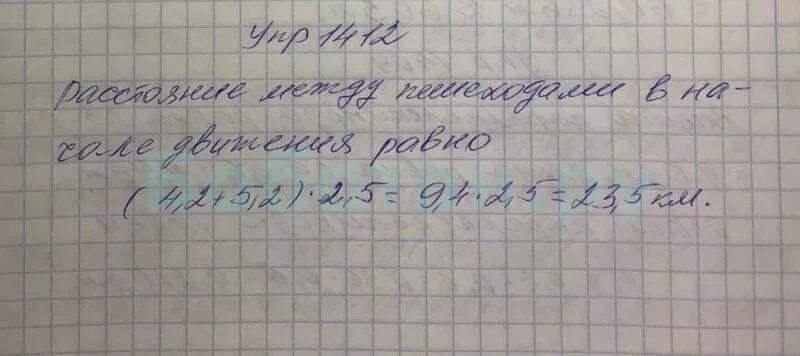 Упр 1412
расстояние между пешеходами в на-
чале движения равно
(4,2+5,2)·2,5=9,4·2,5=23,5км.